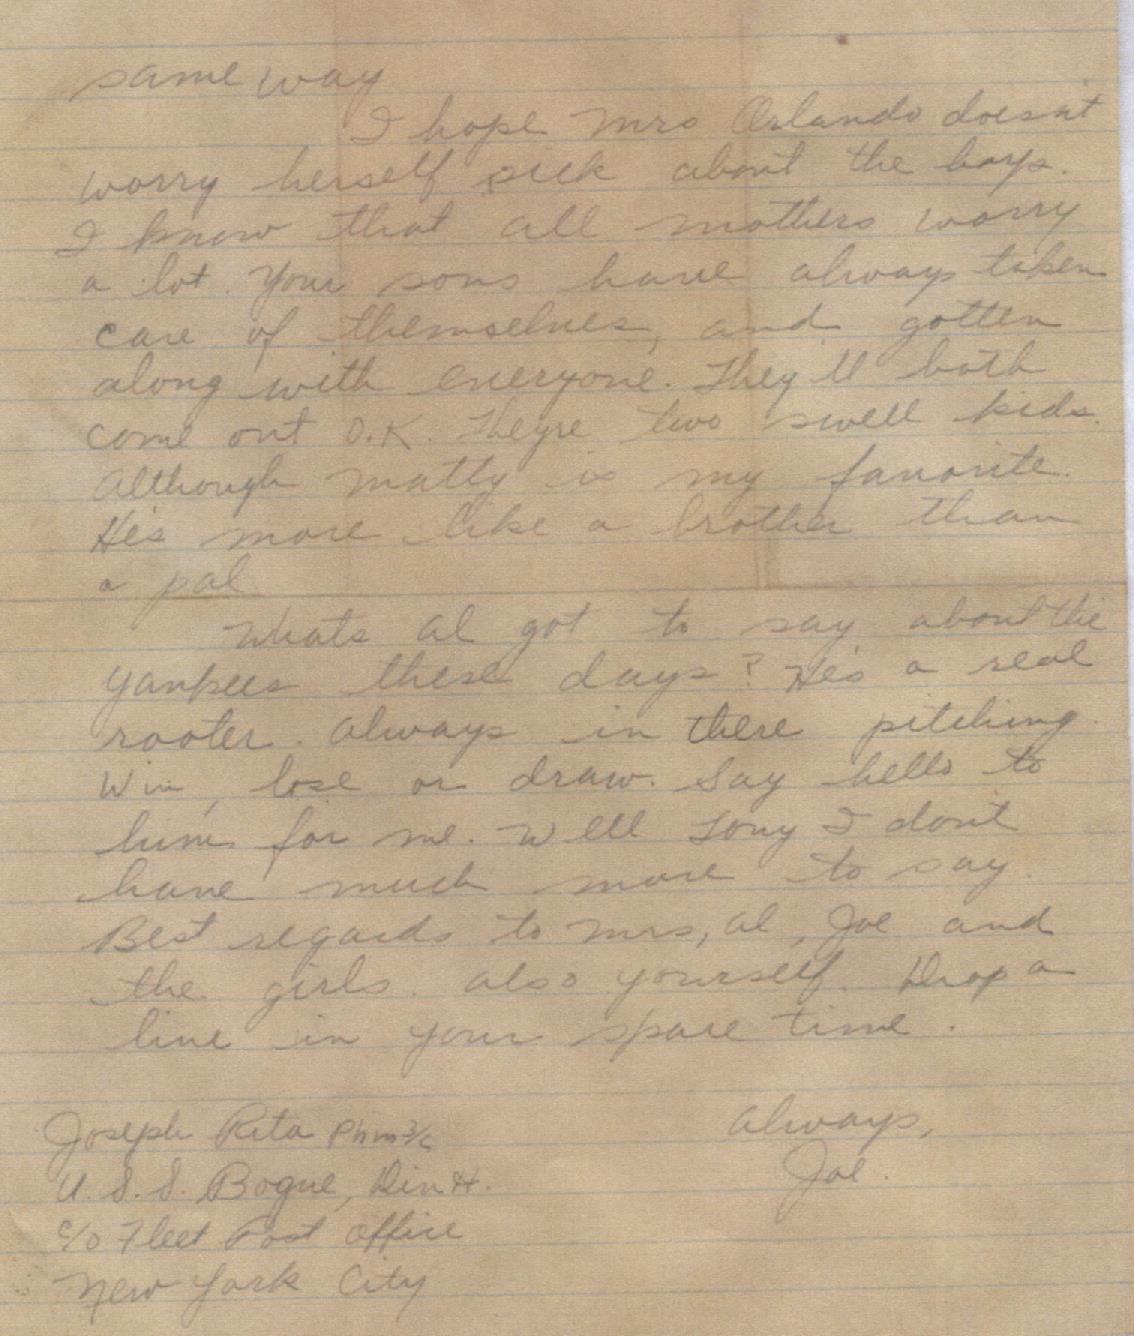 same way
I hope Mrs Orlando doesn't
worry herself sick about the boys.
I know that all mothers worry
a lot. Your sons have always taken
care of themselves, and gotten
along with everyone. They'll both
come out O.K. Theyre two swell kids.
Although Matty is my favorite.
He's more like a brother than
a pal
Whats Al got to say about the
Yankees these days? He's a real
rooter. Always in there pitching.
Win, lose or draw. Say hello to
him for me. Well Tony I dont
have much more to say.
Best regards to Mrs, Al, Joe and
the girls. also yourself. Drop a
line in your spare time.
Always,
Joe.
Joseph Rita Phm3/c
U.S.S. Bogue, Div H.
c/o Fleet Post Office
New York City